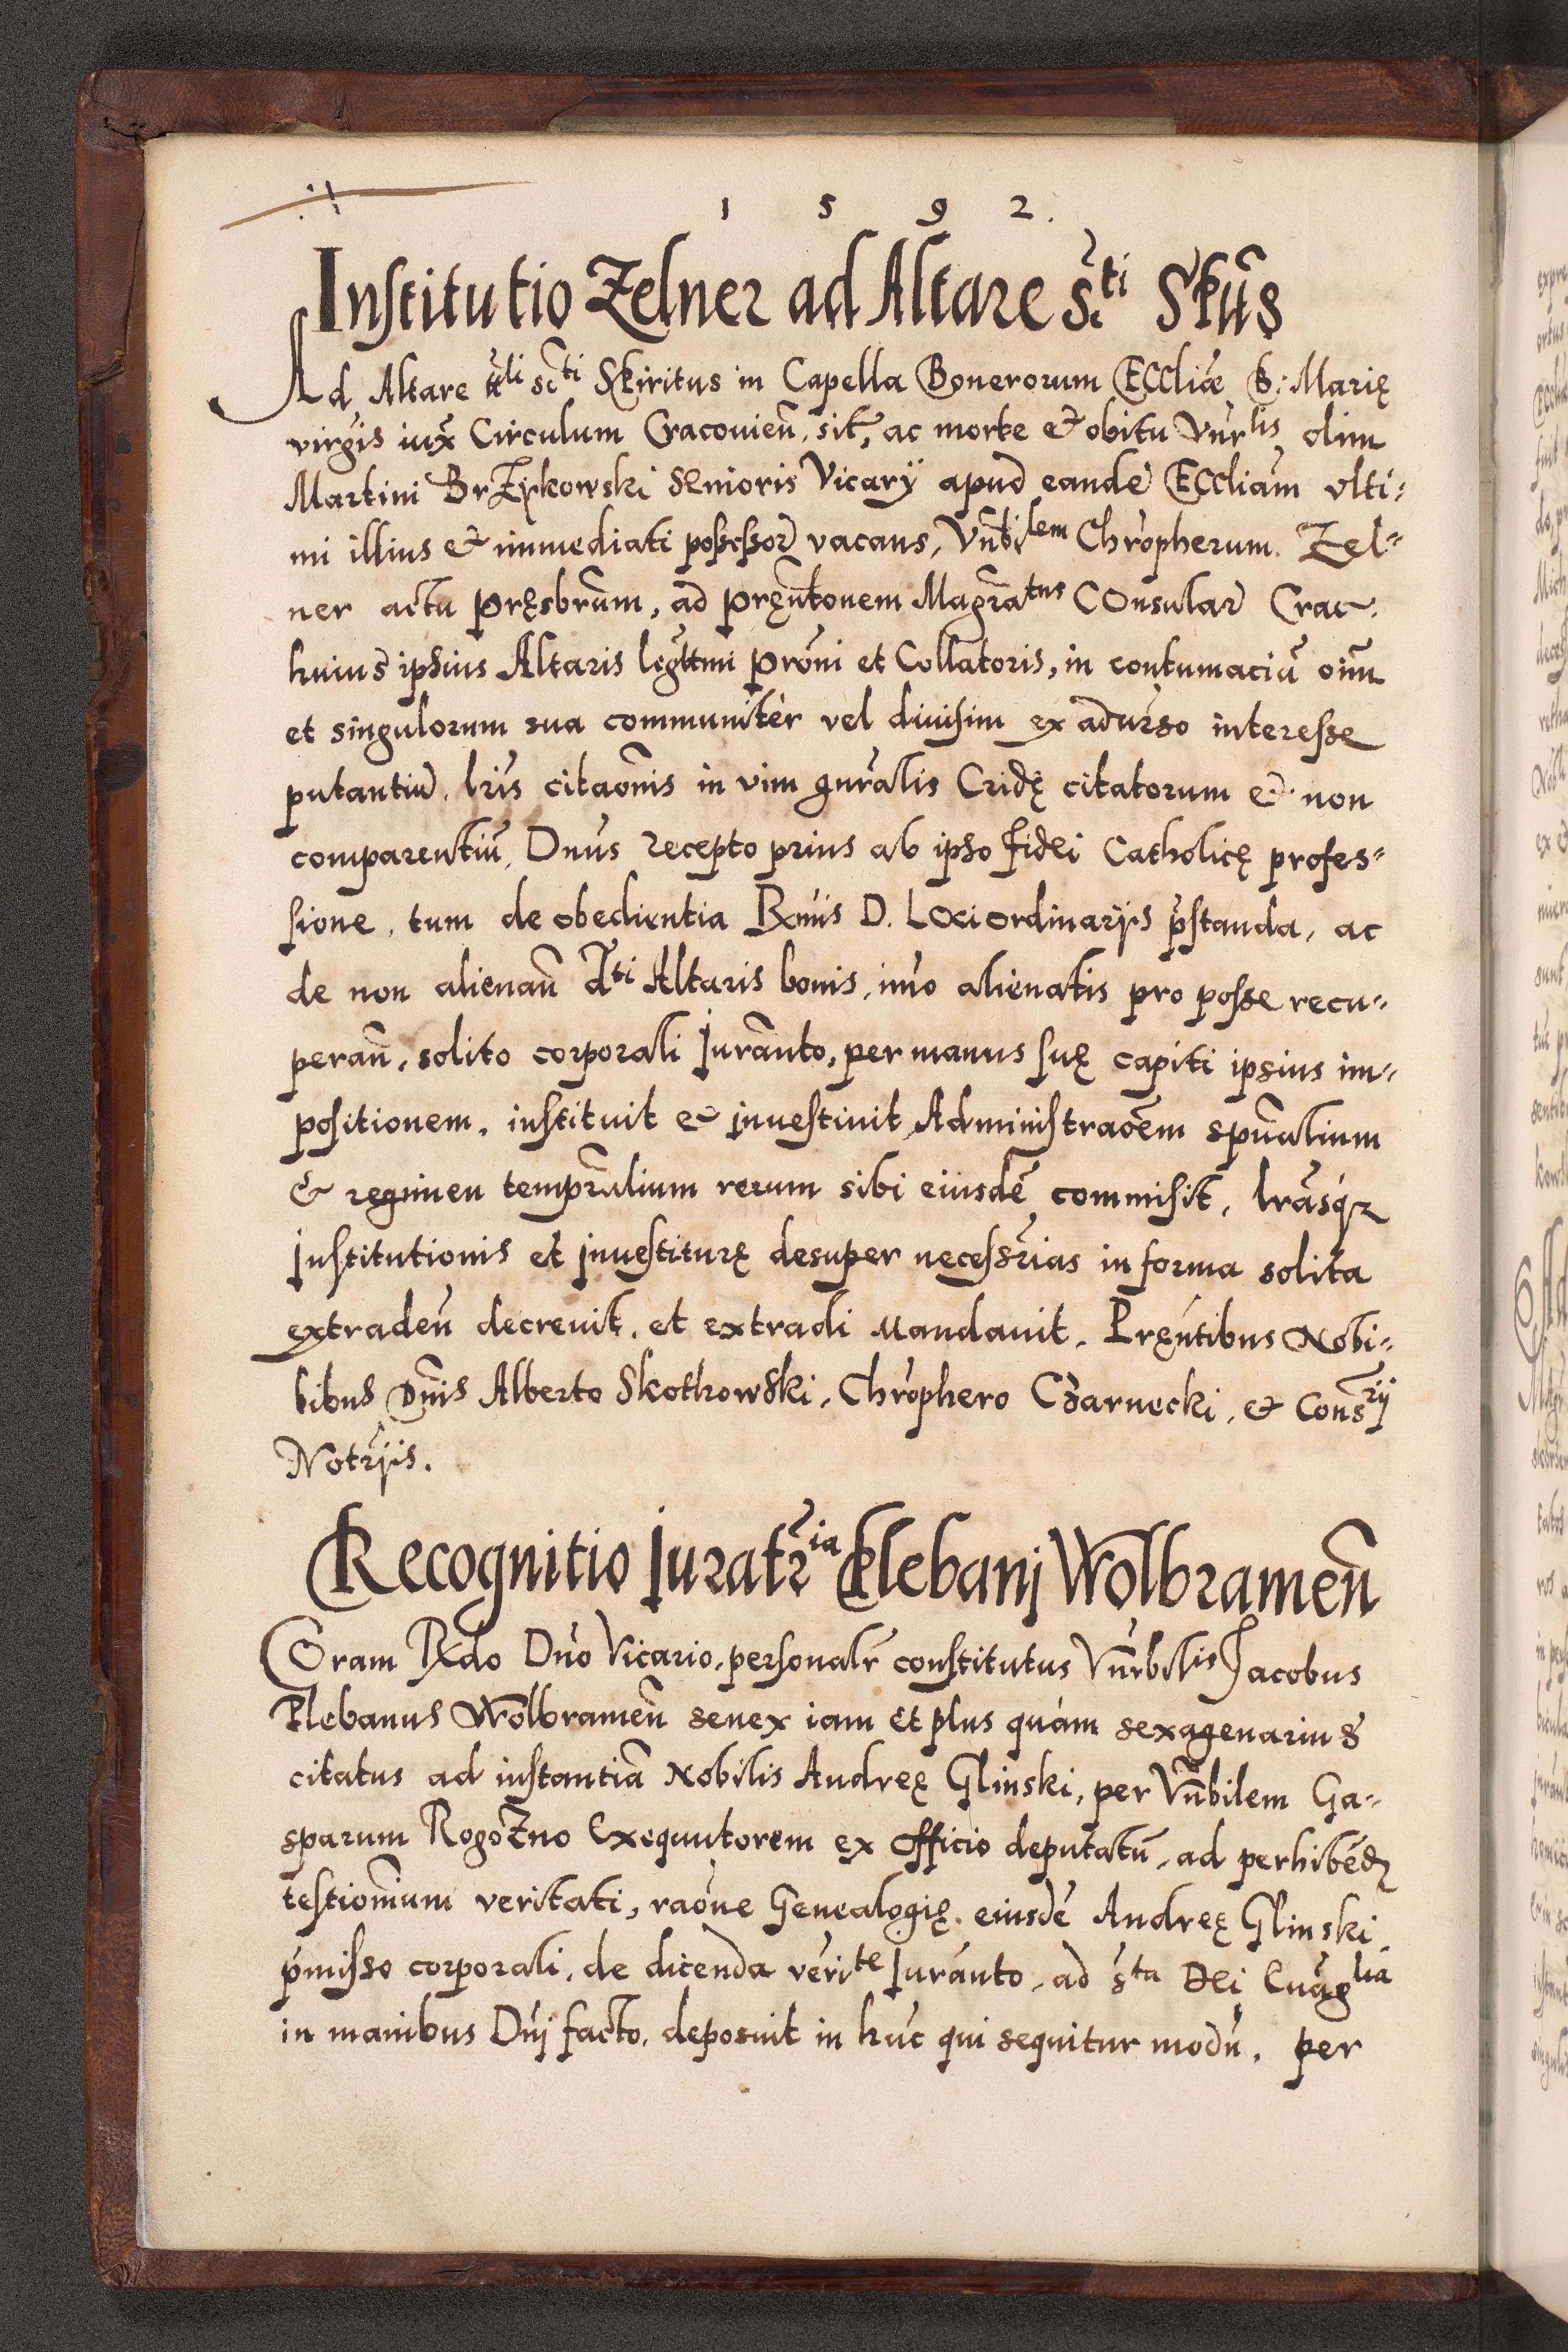 1 5 9 2.
Institutio Zelner ad Altare S.ti Spūs
Ad Altare ttli scti Spiritus in Capella Bonerorum Eccliæ B: Marię
virgis iux̄ Circulum Cracouień. sit̄, ac morte et obitu Vnrlis olim
Martini Brzykowski senioris Vicarÿ apud eandē Eccliam vlti-
mi illius et immediati possessor̄ vacans, Vnbilem Chrōpherum Zel-
ner actu pręsbrūm, ad pręn̄tonem Magrātus Consular̄ Crac.
huius ipsius Altaris legttmi prōni et Collatoris, in contumaciā oīm
et singulorum sua communiter vel diuisim ex aduerso interesse
putantiū. lris citaōnis in vim gnrālis Cridę citatorum et non
comparentiū, Dnus recepto prius ab ipso fidei Catholicę profes-
sione, tum de obedientia Rmis D. Loci ordinarijs p̄standa, ac
de non alienan̄ dti Altaris bonis, imo alienatis pro posse recu-
peran̄, solito corporali Iurānto, per manus suę capiti ipsius im-
positionem, instituit et inuestiuit, Administraōem spūalium
et regimen temprālium rerum sibi eiusdē commisit, lrāsq3
Institutionis et inuestiturę desuper necessrīas in forma solita
extraden̄ decreuit, et extradi mandauit. Pręntibus Nobi-
libus Dnis Alberto Skotkowski, Chrōphero Czarnecki, et Consrij
Notrijs.
Recognitio Juratria Plebanj Wolbramen̄
Coram Rdo Dno Vicario, personalr̄ constitutus Vnrbilis Jacobus
Plebanus Wolbramen̄ senex iam et plus quam sexagenarius
citatus ad instantiā Nobilis Andreę Glinski, per Vnbilem Ga-
sparum Rogozno Exequutorem ex officio deputatū, ad perhibēd3
testionium veritati, raōne Genealogię eiusdē Andreę Glinski
p̄misso corporali, de dicenda verite Iurānto, ad sta Dei Euāglia
in manibus Dnj facto, deposuit in hūc qui sequitur modū. per